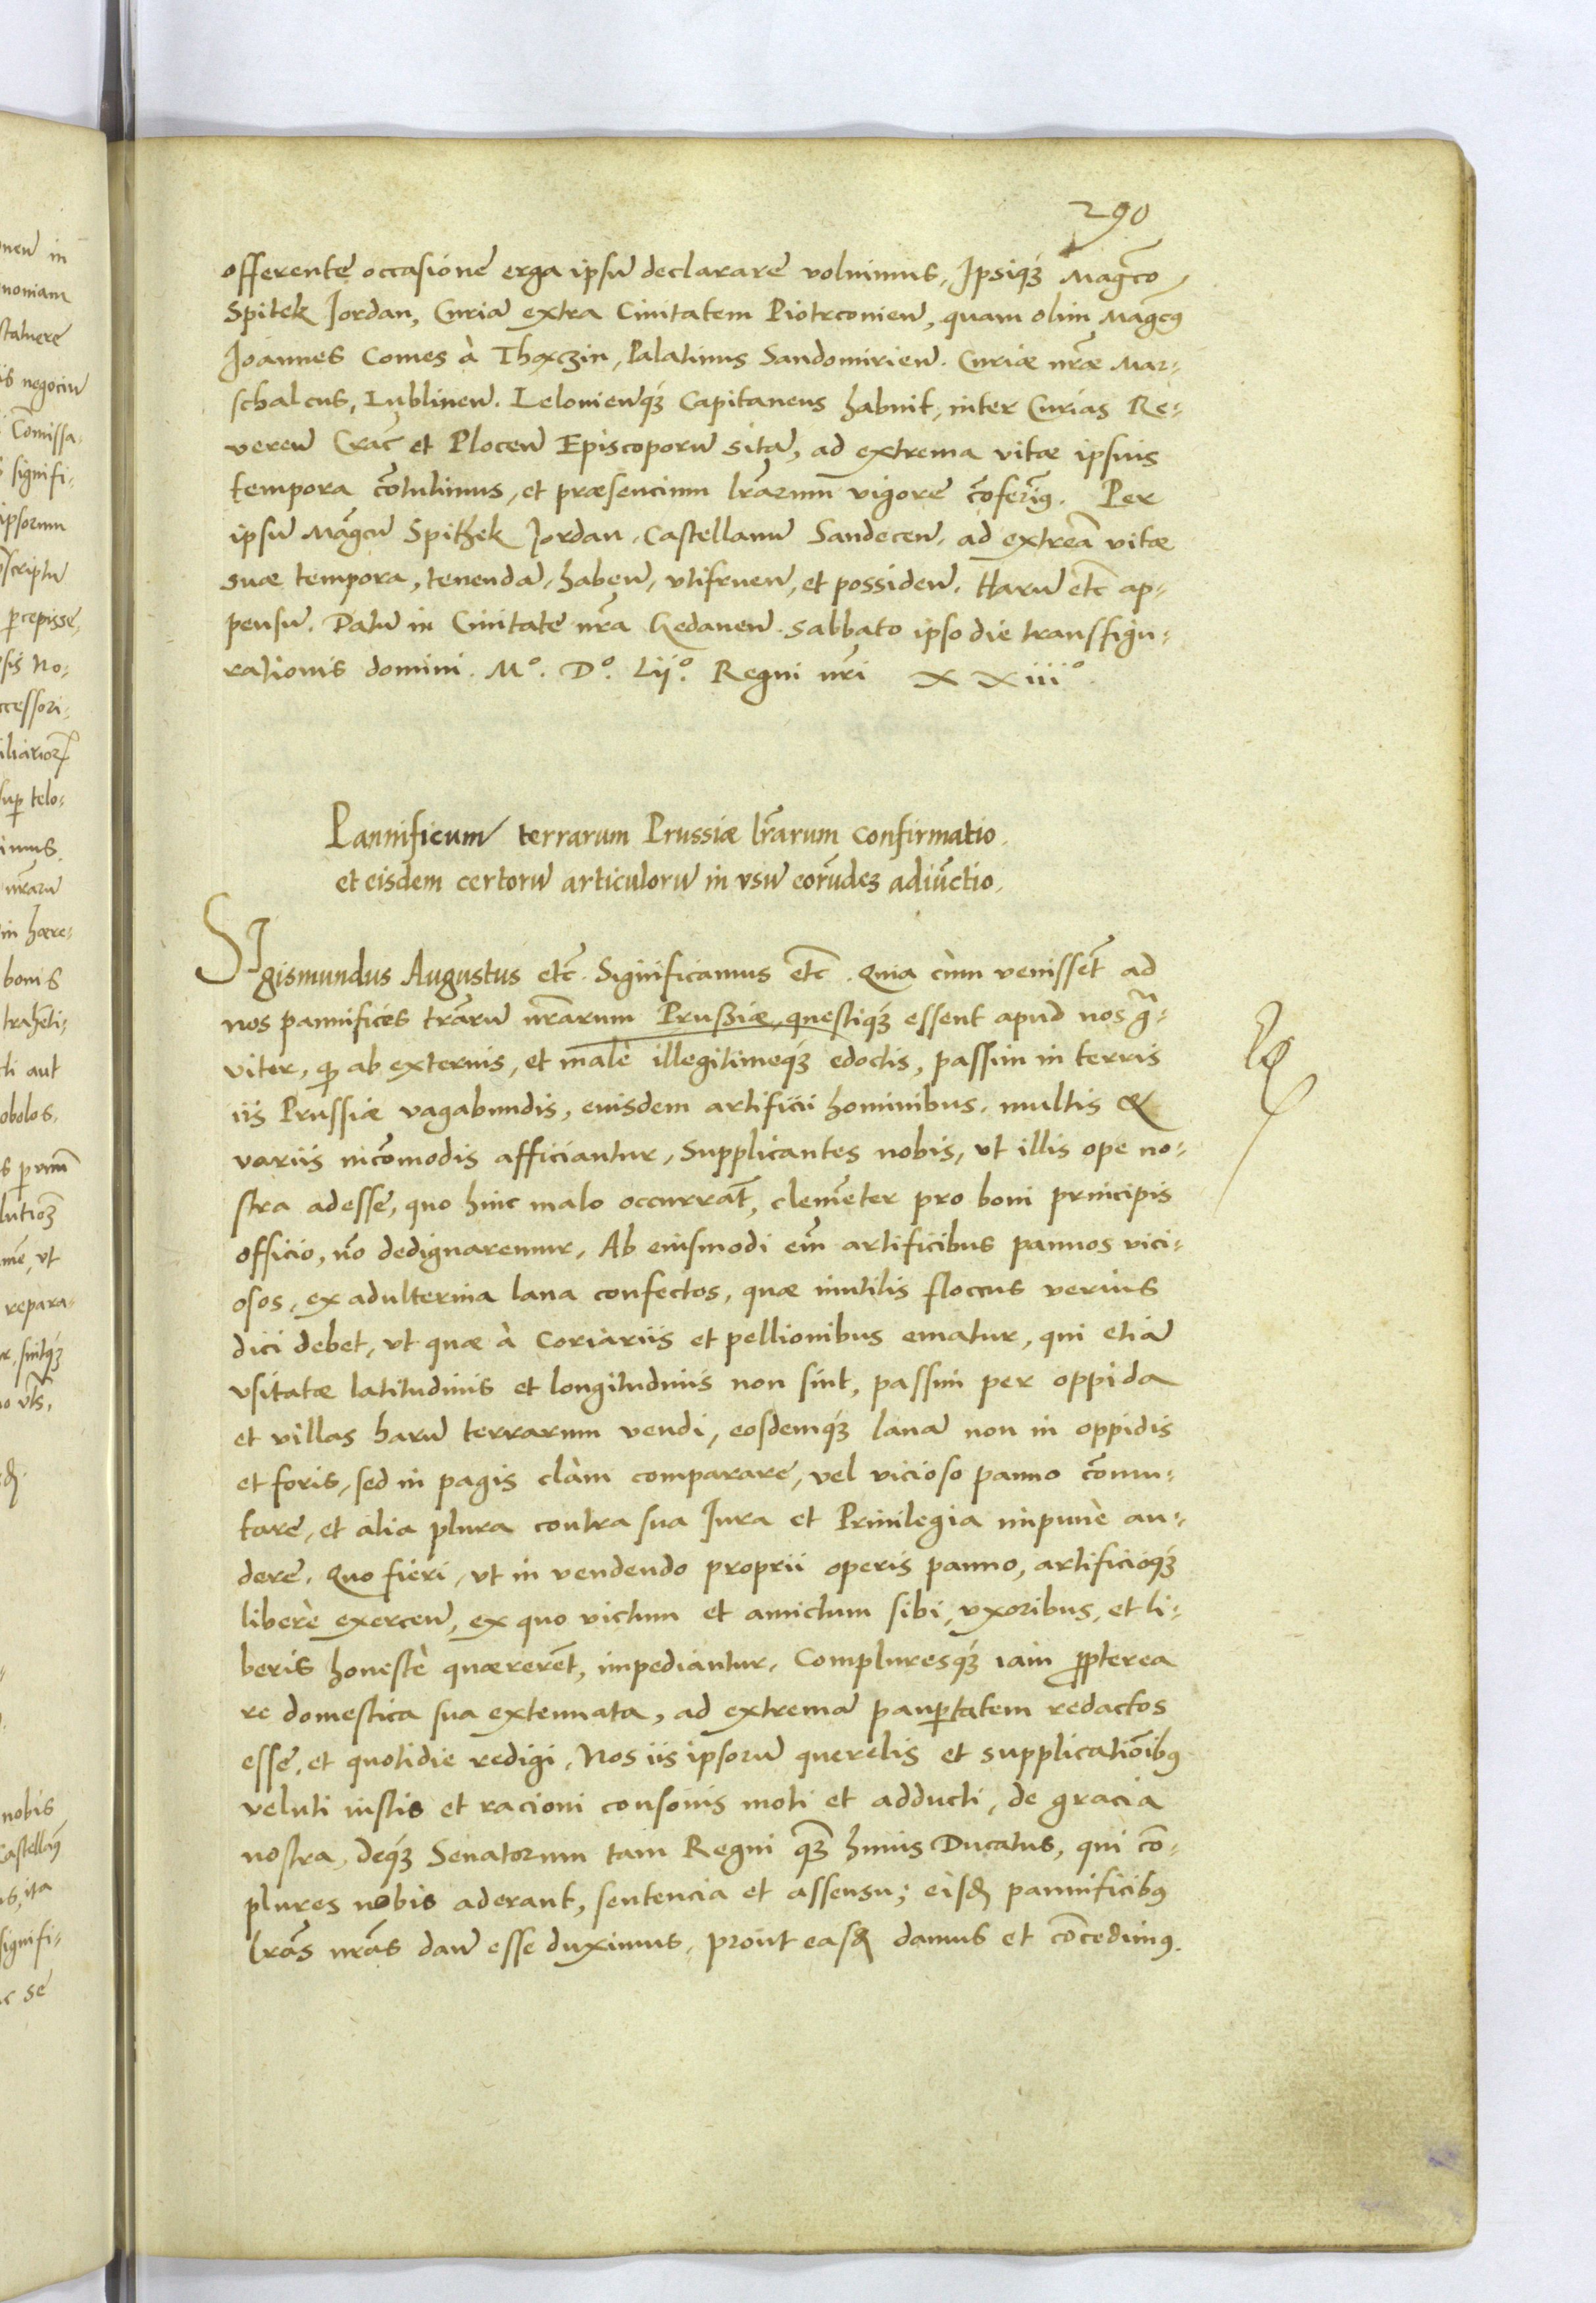 290
offerente occasione erga ipsū declarare voluimus, Ipsiq́ꝫ Magco
Spitek Jordan, Curiā extra Ciuitatem Piotrconieñ, quam olim Magcus
Joannes Comes à Thaxczin, Palatinus Sandomirieñ. Curiæ nr̃æ Mar-
schalcus, Lublineñ. Lelouieñq́ꝫ Capitaneus habuit, inter Curias Re-
vereñ Crac̃ et Ploceñ Episcoporū sitā, ad extrema vitæ ipsius
tempora cōtulimus, et præsencium lr̃arum vigore cōferimꝰ. Per
ipsū Magcū Spithek Jordan, Castellanū Sandeceñ. ad extrea vitæ
suæ tempora, tenendā, habeñ, vtifrueñ, et possideñ. Harū etc̃ ap-
pensū. Datū in Ciuitate nr̃a Gedaneñ. Sabbato ipso die transfigu-
rationis domini. Mº. Dº. Lijº. Regni nr̃i XXiiiº.
Pannificum terrarum Prussiæ lr̃arum confirmatio
et eisdem certorū articulorū in vsū eorūdeꝫ adiūctio.
SIgismundus Augustus etc̃. Significamus etc̃. Quia cùm venissēt ad
nos pannifices tr̃arū nr̃arum Prußiæ, questiq́ꝫ essent apud nos gra-
viter, qꝫ ab externis, et malè illegitimeq́ꝫ edoctis, passim in terris
iis Prussiæ vagabundis, eiusdem artificii hominibus, multis &
variis incōmodis afficiantur, Supplicantes nobis, vt illis ope no-
stra adesse, quo huic malo occurrāt, clemēter pro boni principis
officio, nō dedignaremur, Ab eiusmodi em̃ artificibus pannos vici-
osos, ex adulterina lana confectos, quæ inutilis floccus verius
dici debet, vt quæ à Coriariis et pellionibus ematur, qui etiā
vsitatæ latitudinis et longitudinis non sint, passim per oppida
et villas harū terrarum vendi, eosdemq́ꝫ lanā non in oppidis
et foris, sed in pagis clàm comparare, vel vicioso panno cōmu-
tare, et alia plura contra sua Jura et Priuilegia impunè au-
dere. Quo fieri, vt in vendendo proprii operis panno, artificioq́ꝫ
liberè exerceñ, ex quo victum et amictum sibi, vxoribus, et li-
beris honestè quærerēt, impediantur, Compluresq́ꝫ iam ꝓpterea
re domestica sua extenuata, ad extremā paupertatem redactos
esse, et quotidie redigi. Nos iis ipsorū querelis et supplicatiōibꝰ
veluti iustis et racioni consonis moti et adducti, de gracia
nostra, deq́ꝫ Senatorum tam Regni qꝫ huius Ducatus, qui cō-
plures nobis aderant, sentencia et assensu; eisdꝫ pannificibꝰ
lr̃as nr̃as dañ esse duximus, prout easdꝫ damus et cōcedimꝰ.